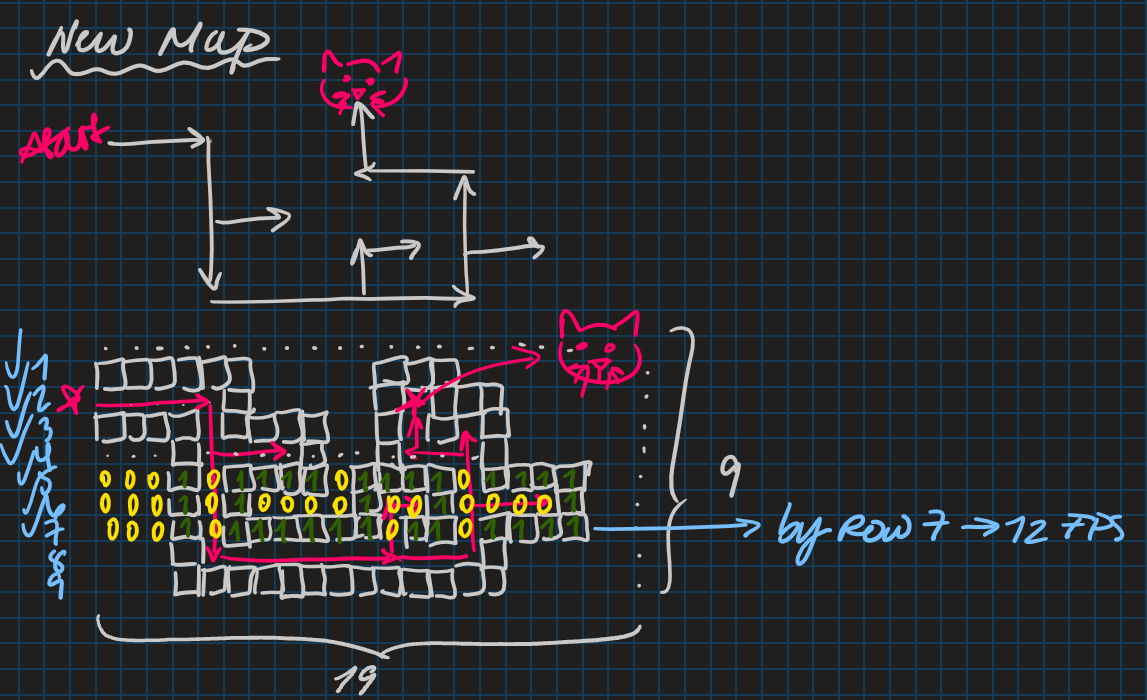 New Map
start
1
2
3
4
5 0 0 0 1 0 1 1 1 1 0 1 1 1 1 0 1 1 1 1
6 0 0 0 1 0 0 0 0 0 0 1 0 0 1 0 0 0 0 1
7 0 0 0 1 0 1 1 1 1 1 1 0 1 1 0 1 1 1 1
8
9
9
by Row 7 → 12 FPS
19